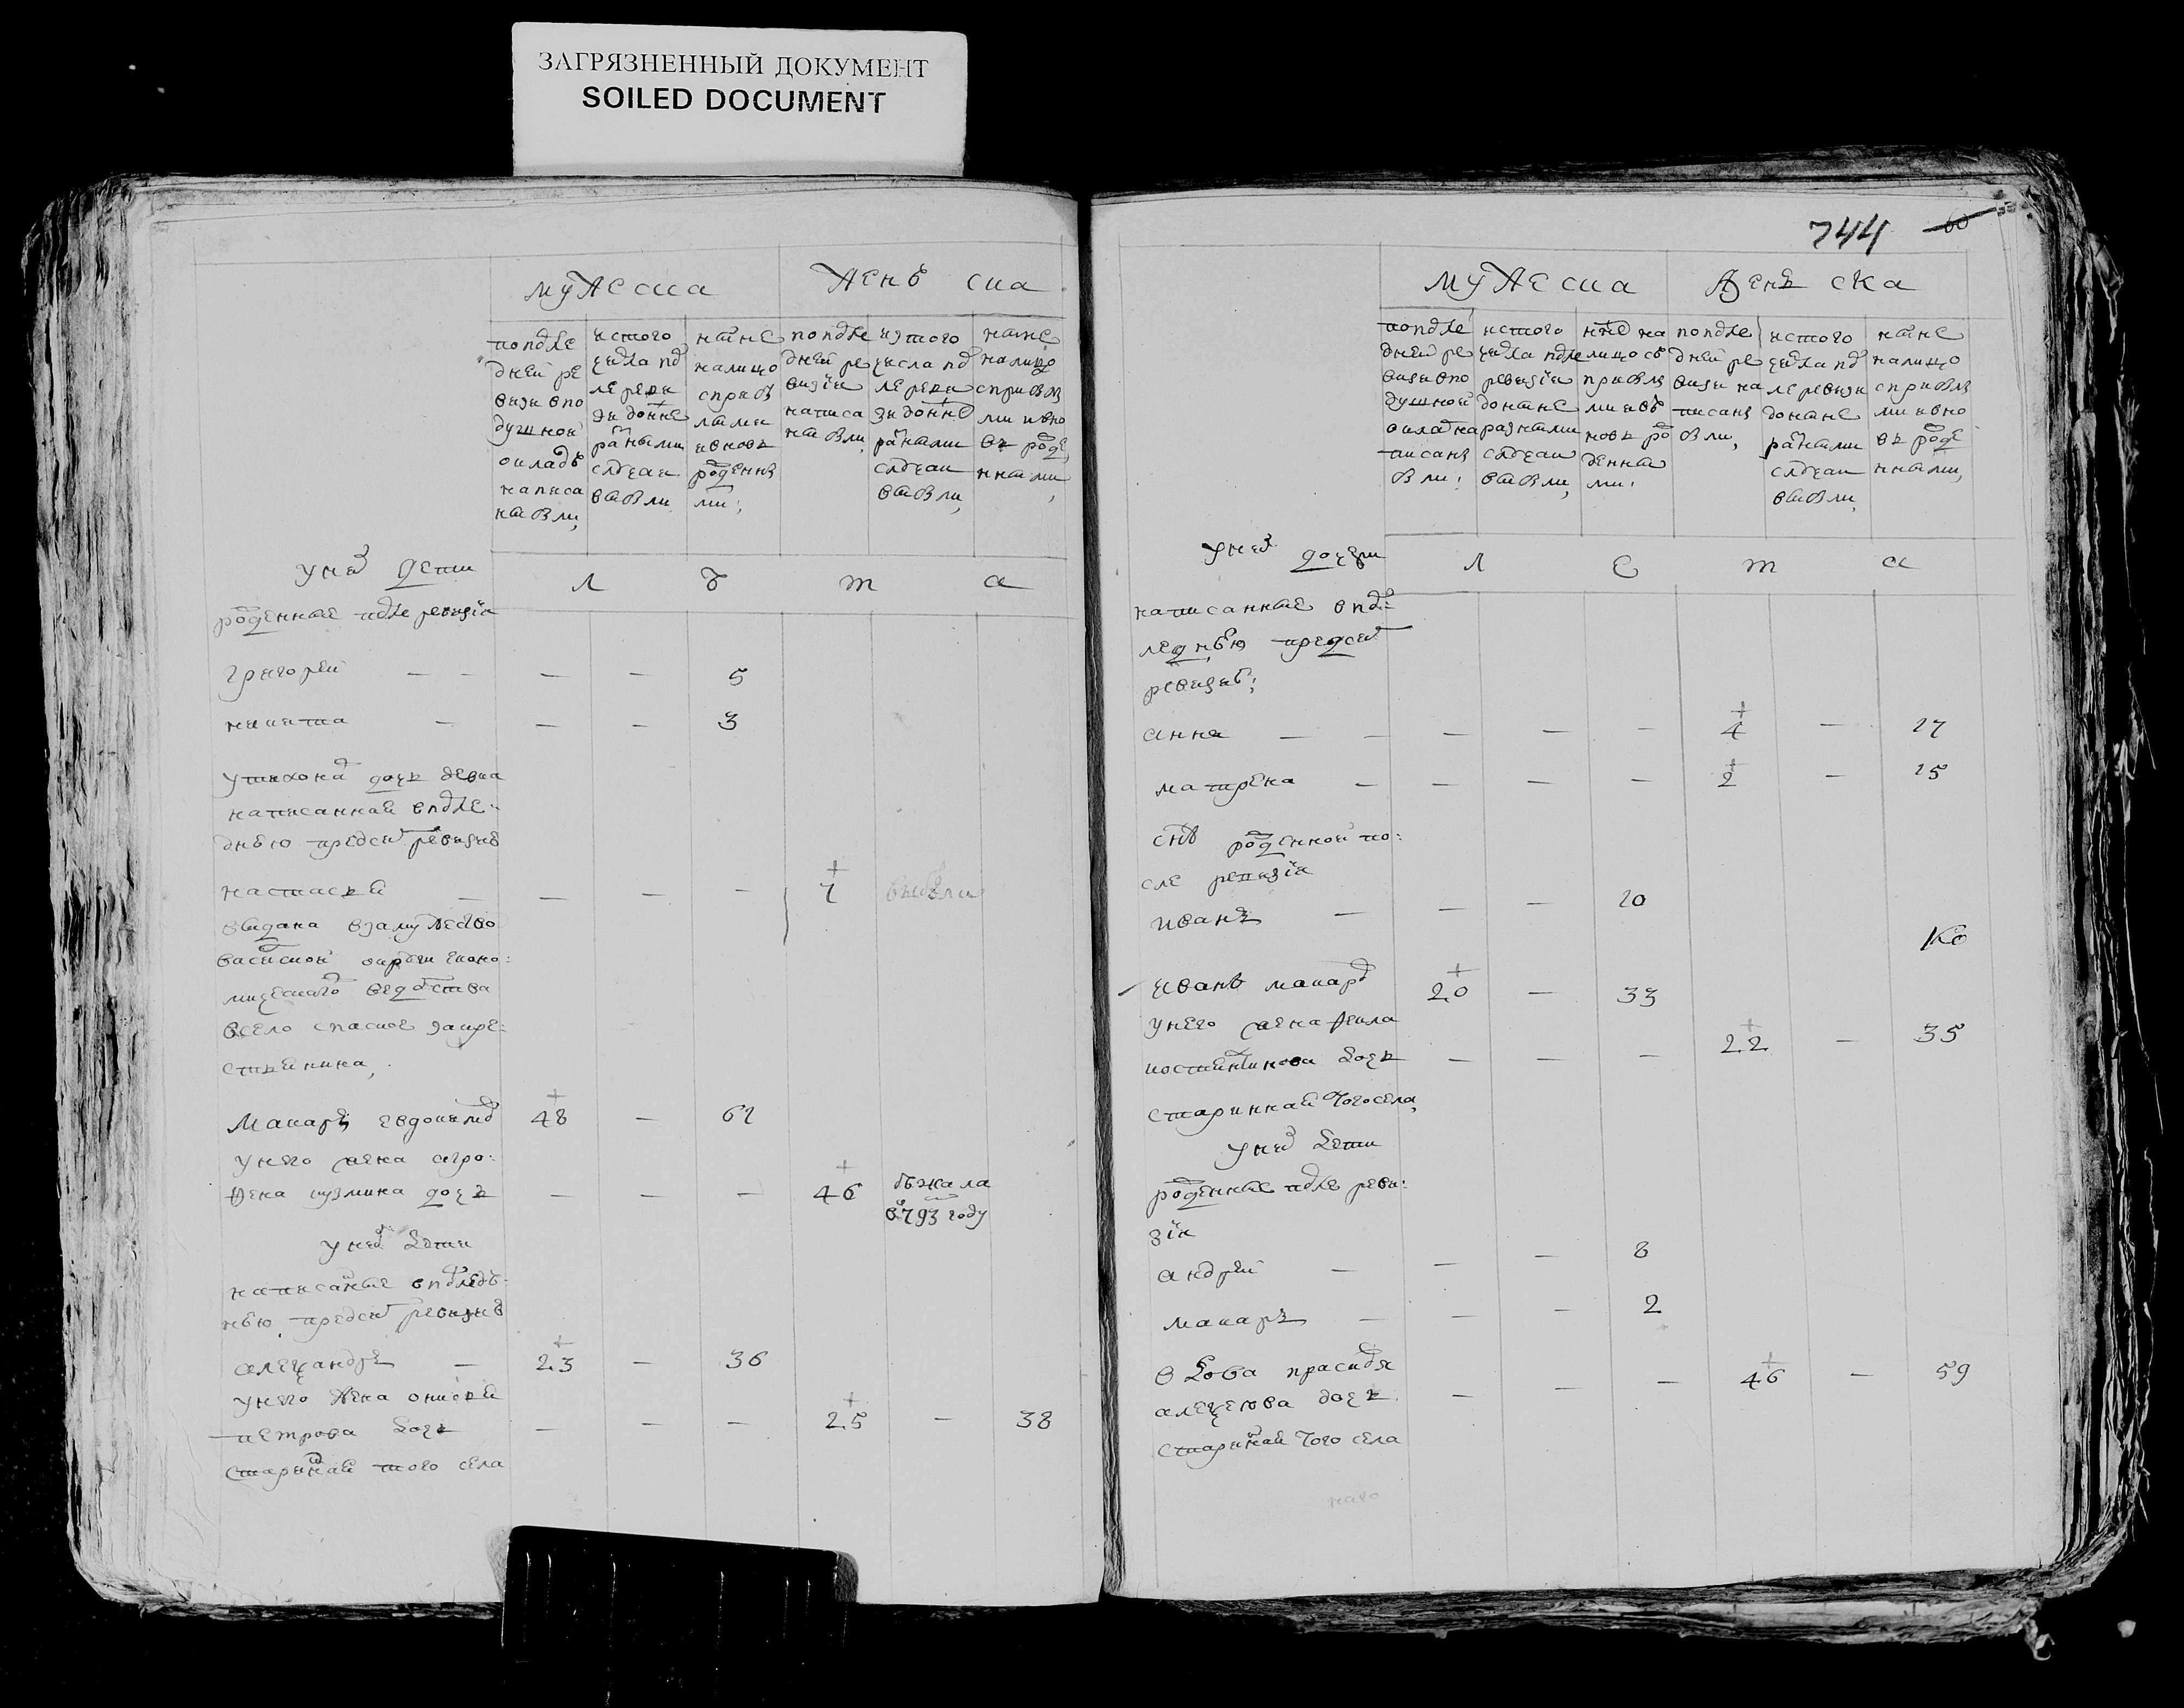 ЗАГРЯЗНЕННЫЙ ДОКУМЕНТ
SOILED DOCUMENT
мужеска
женъ ска
попосле
дней ре
визи впо
душной
окладъ
написа
ны были,
ис того
числа по
сле реви
зи до ныне
разными
случаи
выбыли
ныне
на лицо
с прибы
лыми
и вновь
рожденны
ми;
по после
дней ре
визiи
написа
ны были
из того
числа по
сле реви
зи до ныне
разными
случаи
выбыли,
ныне
на лицо
с прибы
ми и вно
вь роже
нными,
л ѣ т а
у них дети
рожденные после ревизiи
григорей — — — — 5
никита — — — 3
у тихона дочь девка
написанная в после-
днею пред сим ревизию
настасья — — — — 7 выбыла
выдана взамужество
в оной округи эконо:
мического ведомства
в село спаское за кре:
стьянина,
Макаръ евдокимов 48 — 61
у него жена агро:
фена кузмина дочь — — — 46 бежала
в 793 году
у них дети
написанные в последъ-
нею пред сим ревизию
александръ — 23 — 36
у него жена онисья
петрова дочь — — — 25 — 38
старинная того села
744 60
мужеска
женъ ска
по после
дней ре
визи впо
душной
оклад на
писаны
были:
ис того
числа после
ревизiи
до ныне
разными
случаи
выбыли,
ныне на
лицо съ
прибылы
ми и въ
новь ро
жденны
ми:
по после
дней ре
визи на
писаны
были,
ис того
числа по
сле ревизи
до ныне
разными
случаи
выбыли,
ныне
на лицо
с прибылы
ми и вно
вь роже
нными,
л е т а
у них дочери
написанные в пос-
леднею пред сим
ревизию;
анна — — — — — 4 — 17
матрена — — — — 2 — 15
сынъ рожденной по:
сле ревизiи
иванъ — — — 10
иванъ макаров 20 — 33
у него жена фекла
костентинова дочь — — — 22 — 35
старинная того села,
у них дети
рожденные после реви:
зiи
андрей — — — 8
макаръ — — — 2
вдова прасковья
алексеева дочь — — — 46 — 59
старинная того села